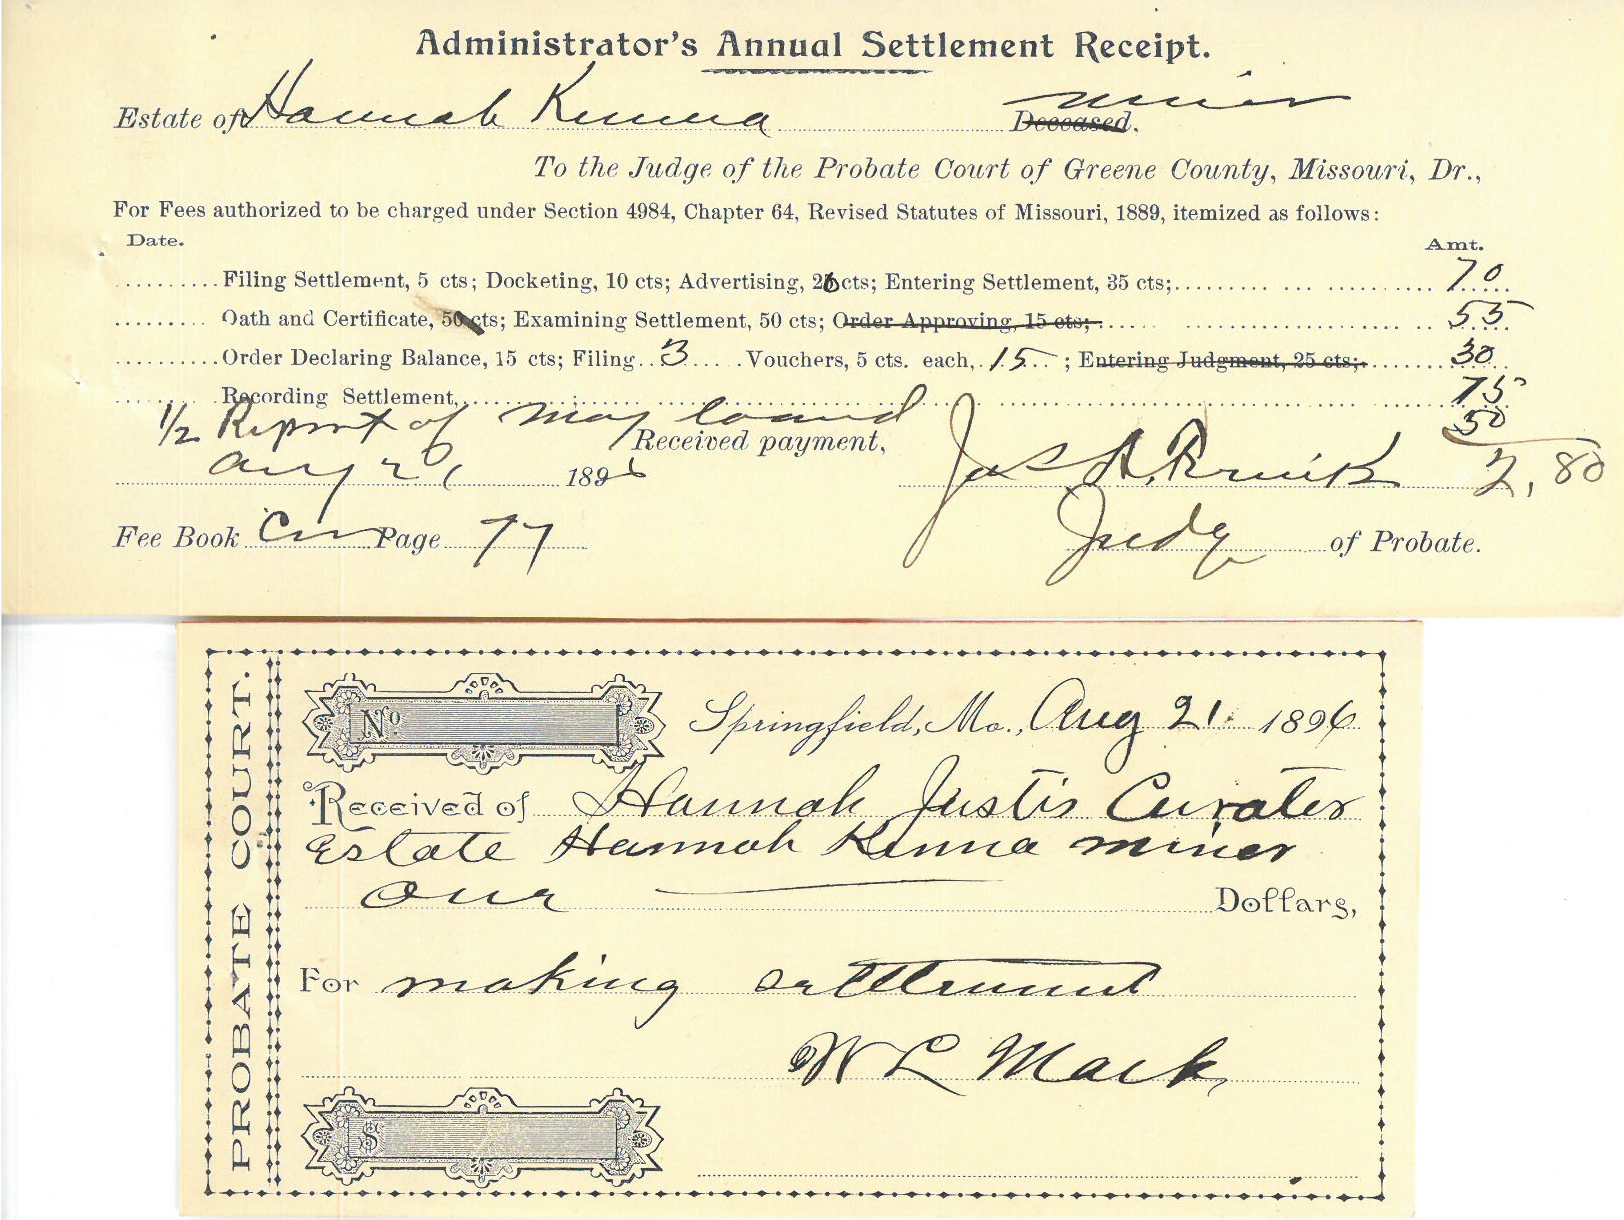 Administrator's Annual Settlement Receipt.
Estate of Hannah Kenna minor Deceased.
To the Judge of the Probate Court of Greene County, Missouri, Dr.,
For Fees authorized to be charged under Section 4984, Chapter 64, Revised Statutes of Missouri, 1889, itemized as follows:
Date. Amt.
Filing Settlement, 5 cts; Docketing, 10 cts; Advertising, 20 cts; Entering Settlement, 35 cts; 70
Oath and Certificate, 5 cts; Examining Settlement, 50 cts; Order Approving, 15 cts; 55
Order Declaring Balance, 15 cts; Filing 3 Vouchers, 5 cts. each, 15 ; Entering Judgment, 25 cts; 30
Recording Settlement, 75
1/2 Report of moy loaned 50
Received payment,
Aug 21 1896 Jas A. 2,80
Fee Book Cur Page 77 Judge of Probate.
PROBATE COURT.
No
Springfield, Mo., Aug 21 1896
Received of Hannah Justis Curater
Estate Hannah Kenna miner
One Dollars,
For making settlement
W L Mack
$